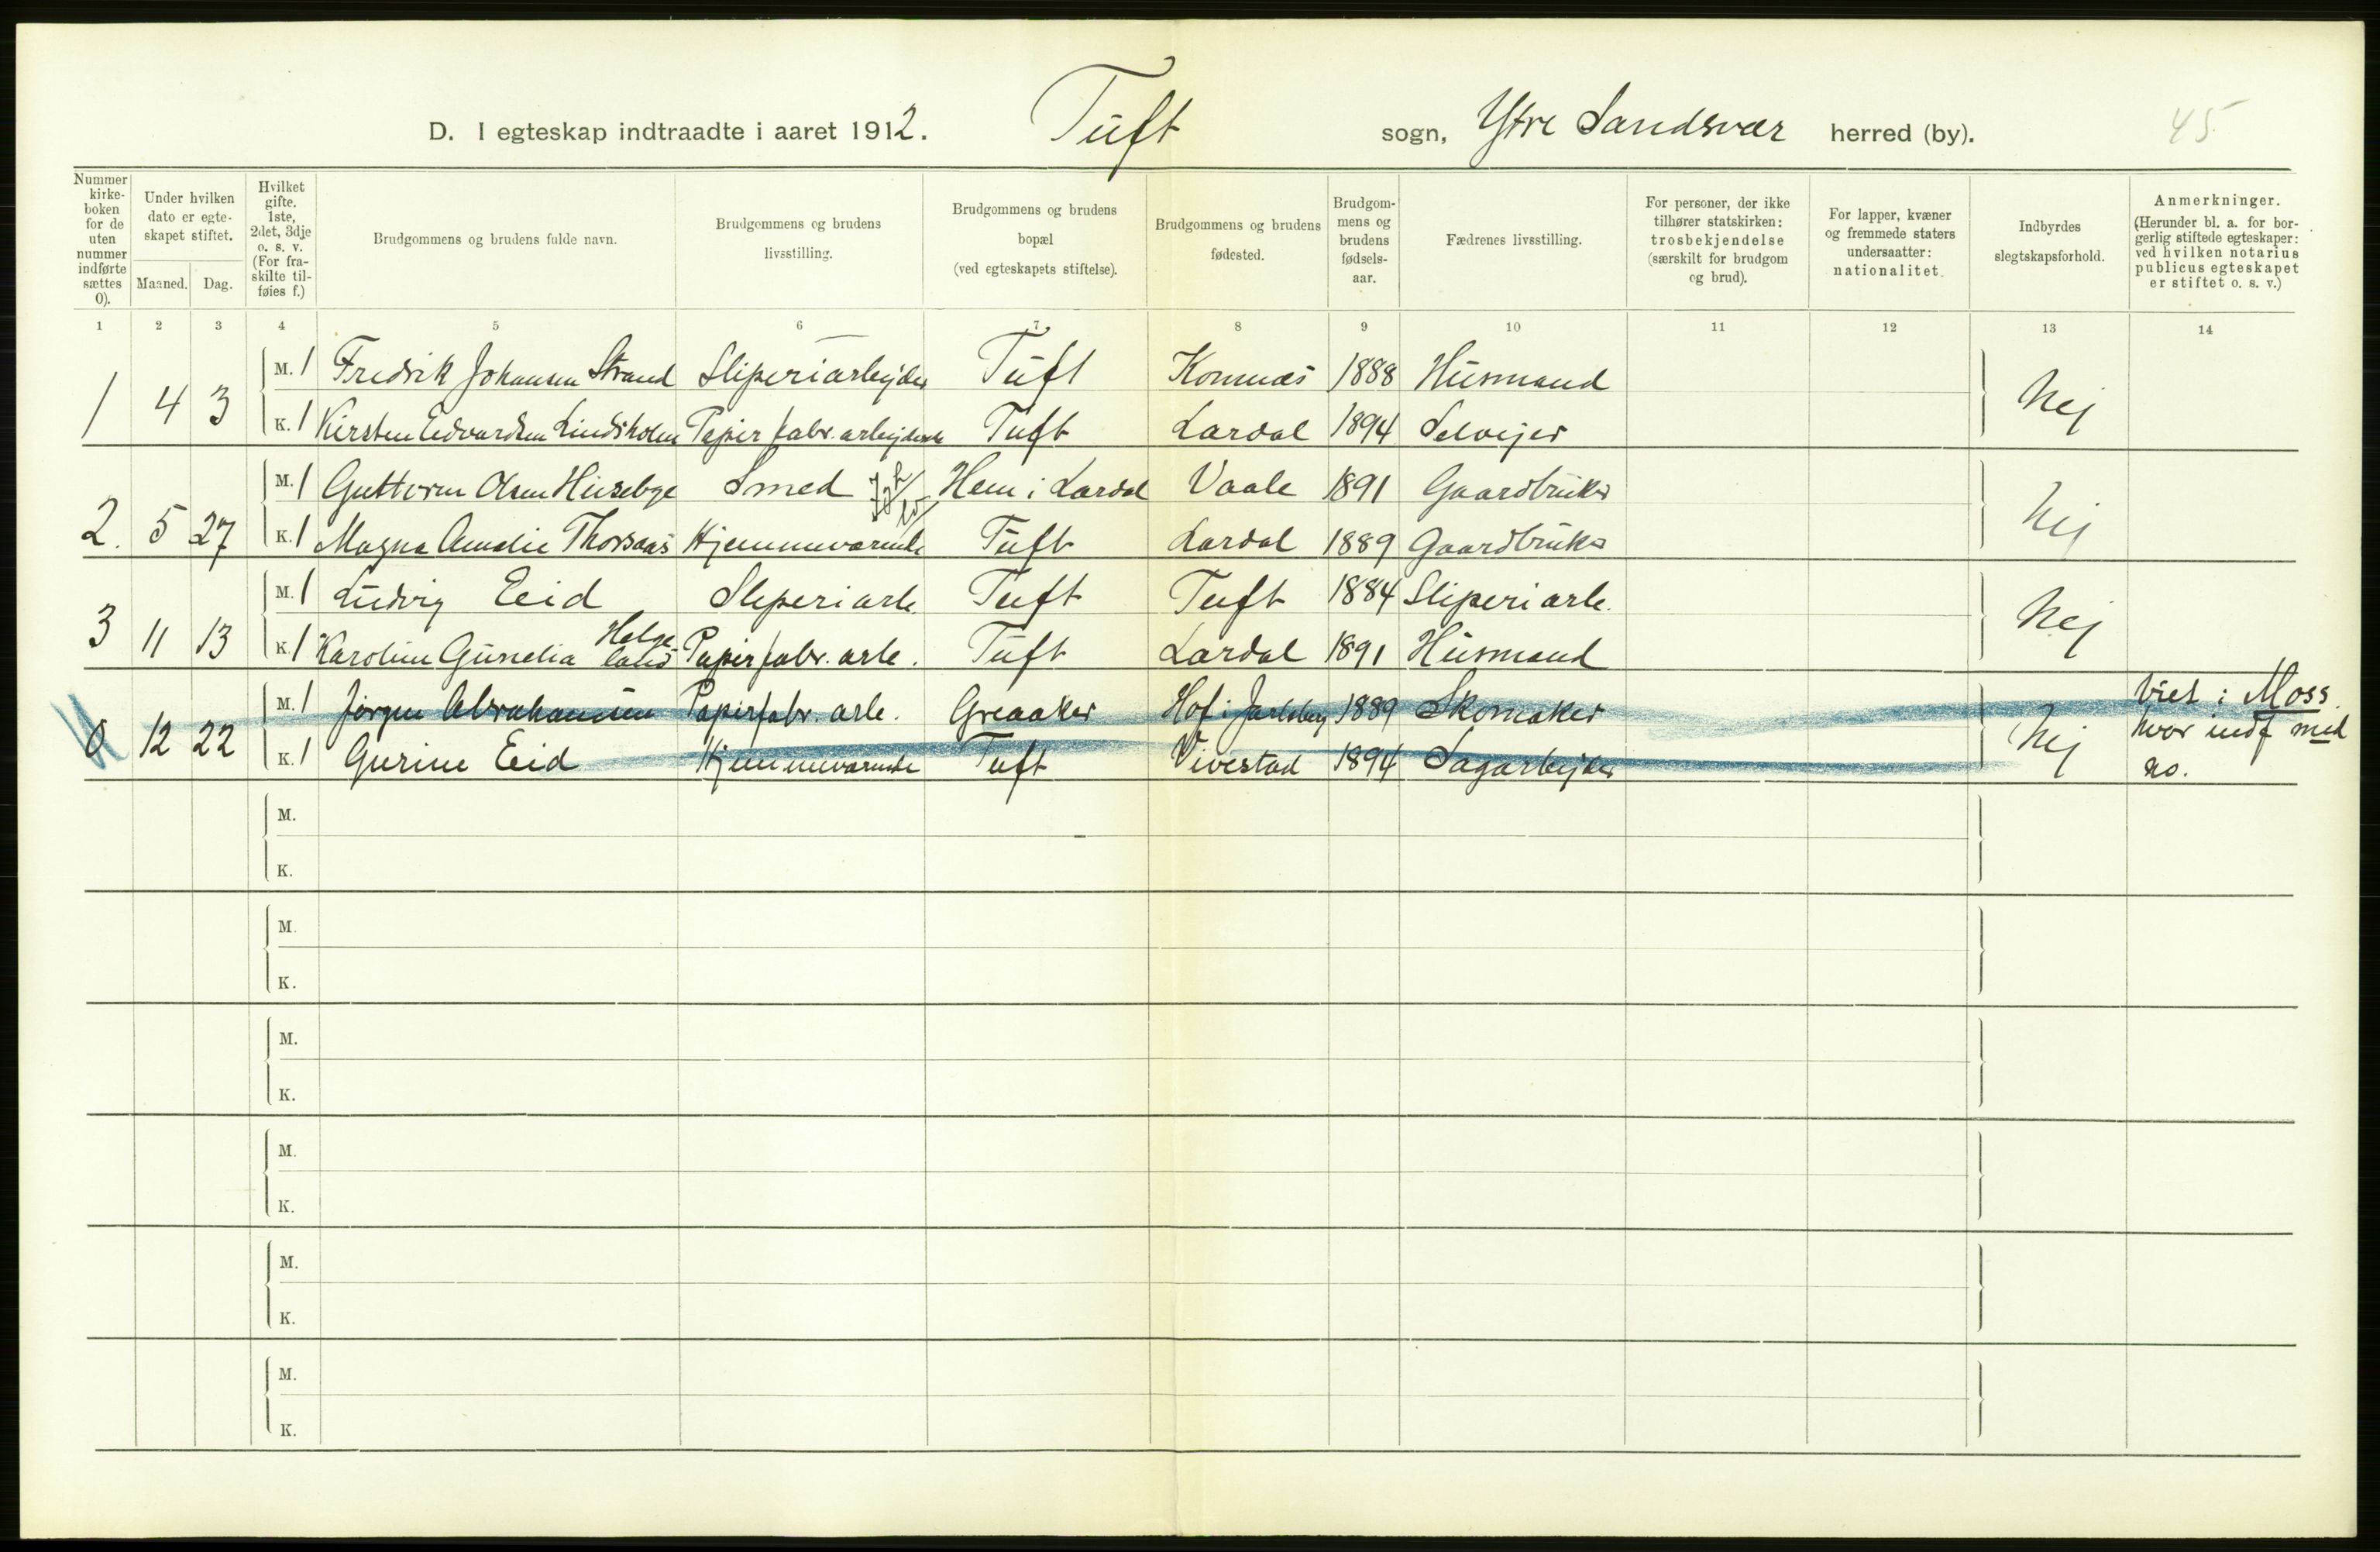 D. I egteskap indtraadte i aaret 1912. Tuft sogn, Ytre Sandsvær herred (by). 45
Nummer kirke-boken for de uten nummer indførte sættes 0).
Under hvilken dato er egte-skapet stiftet.
Maaned. Dag.
Hvilket gifte. 1ste, 2det, 3dje o. s. v. (For fra-skilte til-føies f.)
Brudgommens og brudens fulde navn.
Brudgommens og brudens livsstilling.
Brudgommens og brudens bopæl (ved egteskapets stiftelse).
Brudgommens og brudens fødested.
Brudgom-mens og brudens fødsels-aar.
Fædrenes livsstilling.
For personer, der ikke tilhører statskirken: trosbekjendelse (særskilt for brudgom og brud).
For lapper, kvæner og fremmede staters undersaatter: nationalitet.
Indbyrdes slegtskapsforhold.
Anmerkninger. (Herunder bl. a. for bor-gerlig stiftede egteskaper: ved hvilken notarius publicus egteskapet er stiftet o. s. v.)
1 2 3 4 5 6 7 8 9 10 11 12 13 14
1 4 3 M. 1 Fredrik Johansen Strand Sliperiarbejder Tuft Komnæs 1888 Husmand Nej
K. 1 Kirsten Edvardsen Lindsholm Papir fabr. arbejderske Tuft Lardal 1894 Selvejer
2. 5 27 M. 1 Guttorm Olsen Huseby Smed Hem i Lardal Vaale 1891 Gaardbruker Nej
K. 1 Magna Amalie Thorsaas Hjemmeværende Tuft Lardal 1889 Gaardbruker
3 11 13 M. 1 Ludvig Eid Sliperiarb. Tuft Tuft 1884 Sliperiarb. Nej
K. 1 Karoline Gunelia Helgeland Papirfabr. arb. Tuft Lardal 1891 Husmand
0 12 22 M. 1 Jørgen Abrahamsen Papirfabr. arb. Greaaker Hof i Jarlsberg 1889 Skomaker Nej Viet i Moss hvor indf med no.
K. 1 Gurine Eid Hjemmeværende Tuft Vivestad 1894 Sagarbejder
M.
K.
M.
K.
M.
K.
M.
K.
M.
K.
M.
K.